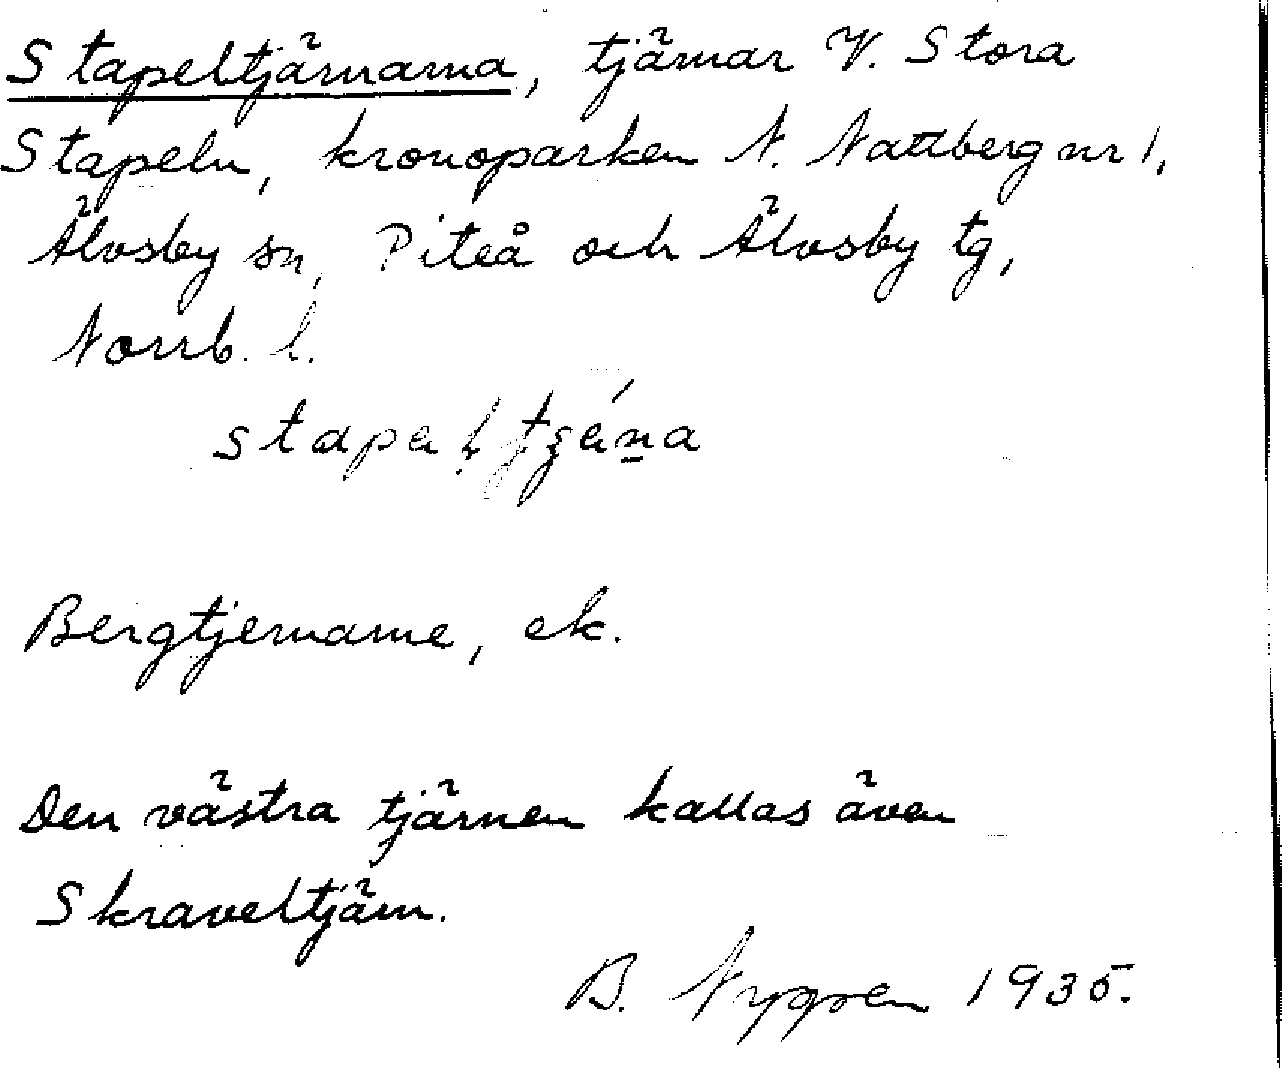 Stapeltjärnarna, tjärnar V. Stora
Stapeln, kronoparken N. Nattberg nr 1,
Älvsby sn, Piteå och Älvsby tg,
Norrb. l.
Bergtjernarne, ek.
Den västra tjärnen kallas även
Skraveltjärn.
B. Nygren 1935.